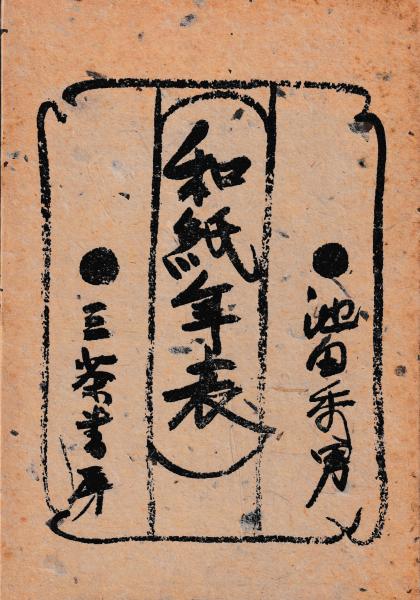 池田秀男
和紙年表
三茶書房